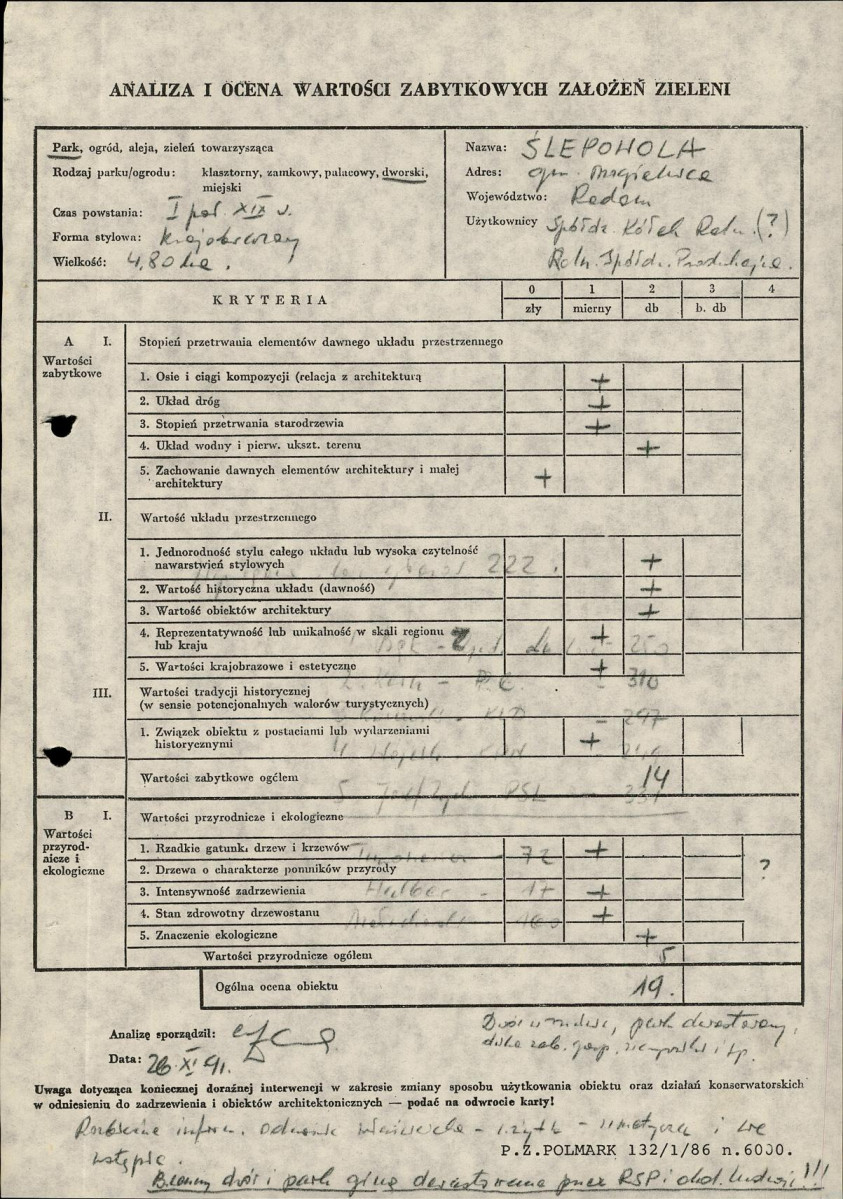 ANALIZA I OCENA WARTOŚCI ZABYTKOWYCH ZAŁOŻEŃ ZIELENI
Park, ogród, aleja, zieleń towarzysząca
Rodzaj parku/ogrodu: klasztorny, zamkowy, pałacowy, dworski,
miejski
Czas powstania: I poł. XIX w.
Forma stylowa: Krajobrazowy
Wielkość: 4,80 ha.
Nazwa: ŚLEPOWOLA
Adres: gm. Mogielnica
Województwo: Radom
Użytkownicy Spółdz. Kółek Roln. (?)
Roln. Spółdz. Produkcyjna.
KRYTERIA
0 1 2 3 4
zły mierny db b. db
A I. Stopień przetrwania elementów dawnego układu przestrzennego
Wartości
zabytkowe
1. Osie i ciągi kompozycji (relacja z architekturą +
2. Układ dróg +
3. Stopień przetrwania starodrzewia +
4. Układ wodny i pierw. ukszt. terenu +
5. Zachowanie dawnych elementów architektury i małej
architektury +
II. Wartość układu przestrzennego
1. Jednorodność stylu całego układu lub wysoka czytelność
nawarstwień stylowych +
222.
2. Wartość historyczna układu (dawność) +
3. Wartość obiektów architektury +
4. Reprezentatywność lub unikalność w skali regionu
lub kraju +
250
5. Wartości krajobrazowe i estetyczne +
310
III. Wartości tradycji historycznej
(w sensie potencjonalnych walorów turystycznych)
297
1. Związek obiektu z postaciami lub wydarzeniami
historycznymi +
Wartości zabytkowe ogółem 14
PSL
B I. Wartości przyrodnicze i ekologiczne
Wartości
przyrod-
nicze i
ekologiczne
1. Rzadkie gatunki drzew i krzewów 72 +
2. Drzewa o charakterze pomników przyrody ?
3. Intensywność zadrzewienia 17 +
4. Stan zdrowotny drzewostanu +
160
5. Znaczenie ekologiczne +
Wartości przyrodnicze ogółem 5
Ogólna ocena obiektu 19.
Analizę sporządził:
Data: 26.XI 91.
Dwór w ruinie, park dewastowany,
Uwaga dotycząca koniecznej doraźnej interwencji w zakresie zmiany sposobu użytkowania obiektu oraz działań konserwatorskich
w odniesieniu do zadrzewienia i obiektów architektonicznych — podać na odwrocie karty!
Rozbieżne inform. odnośnie właściciela - użytk - i we
wstępie.
P.Z.POLMARK 132/1/86 n.6000.
dwór i park giną dewastowane przez RSP i okol. ludność!!!